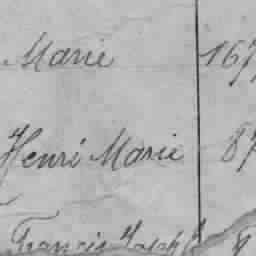 Marie 167
Henri Marie 87
Francis Joseph